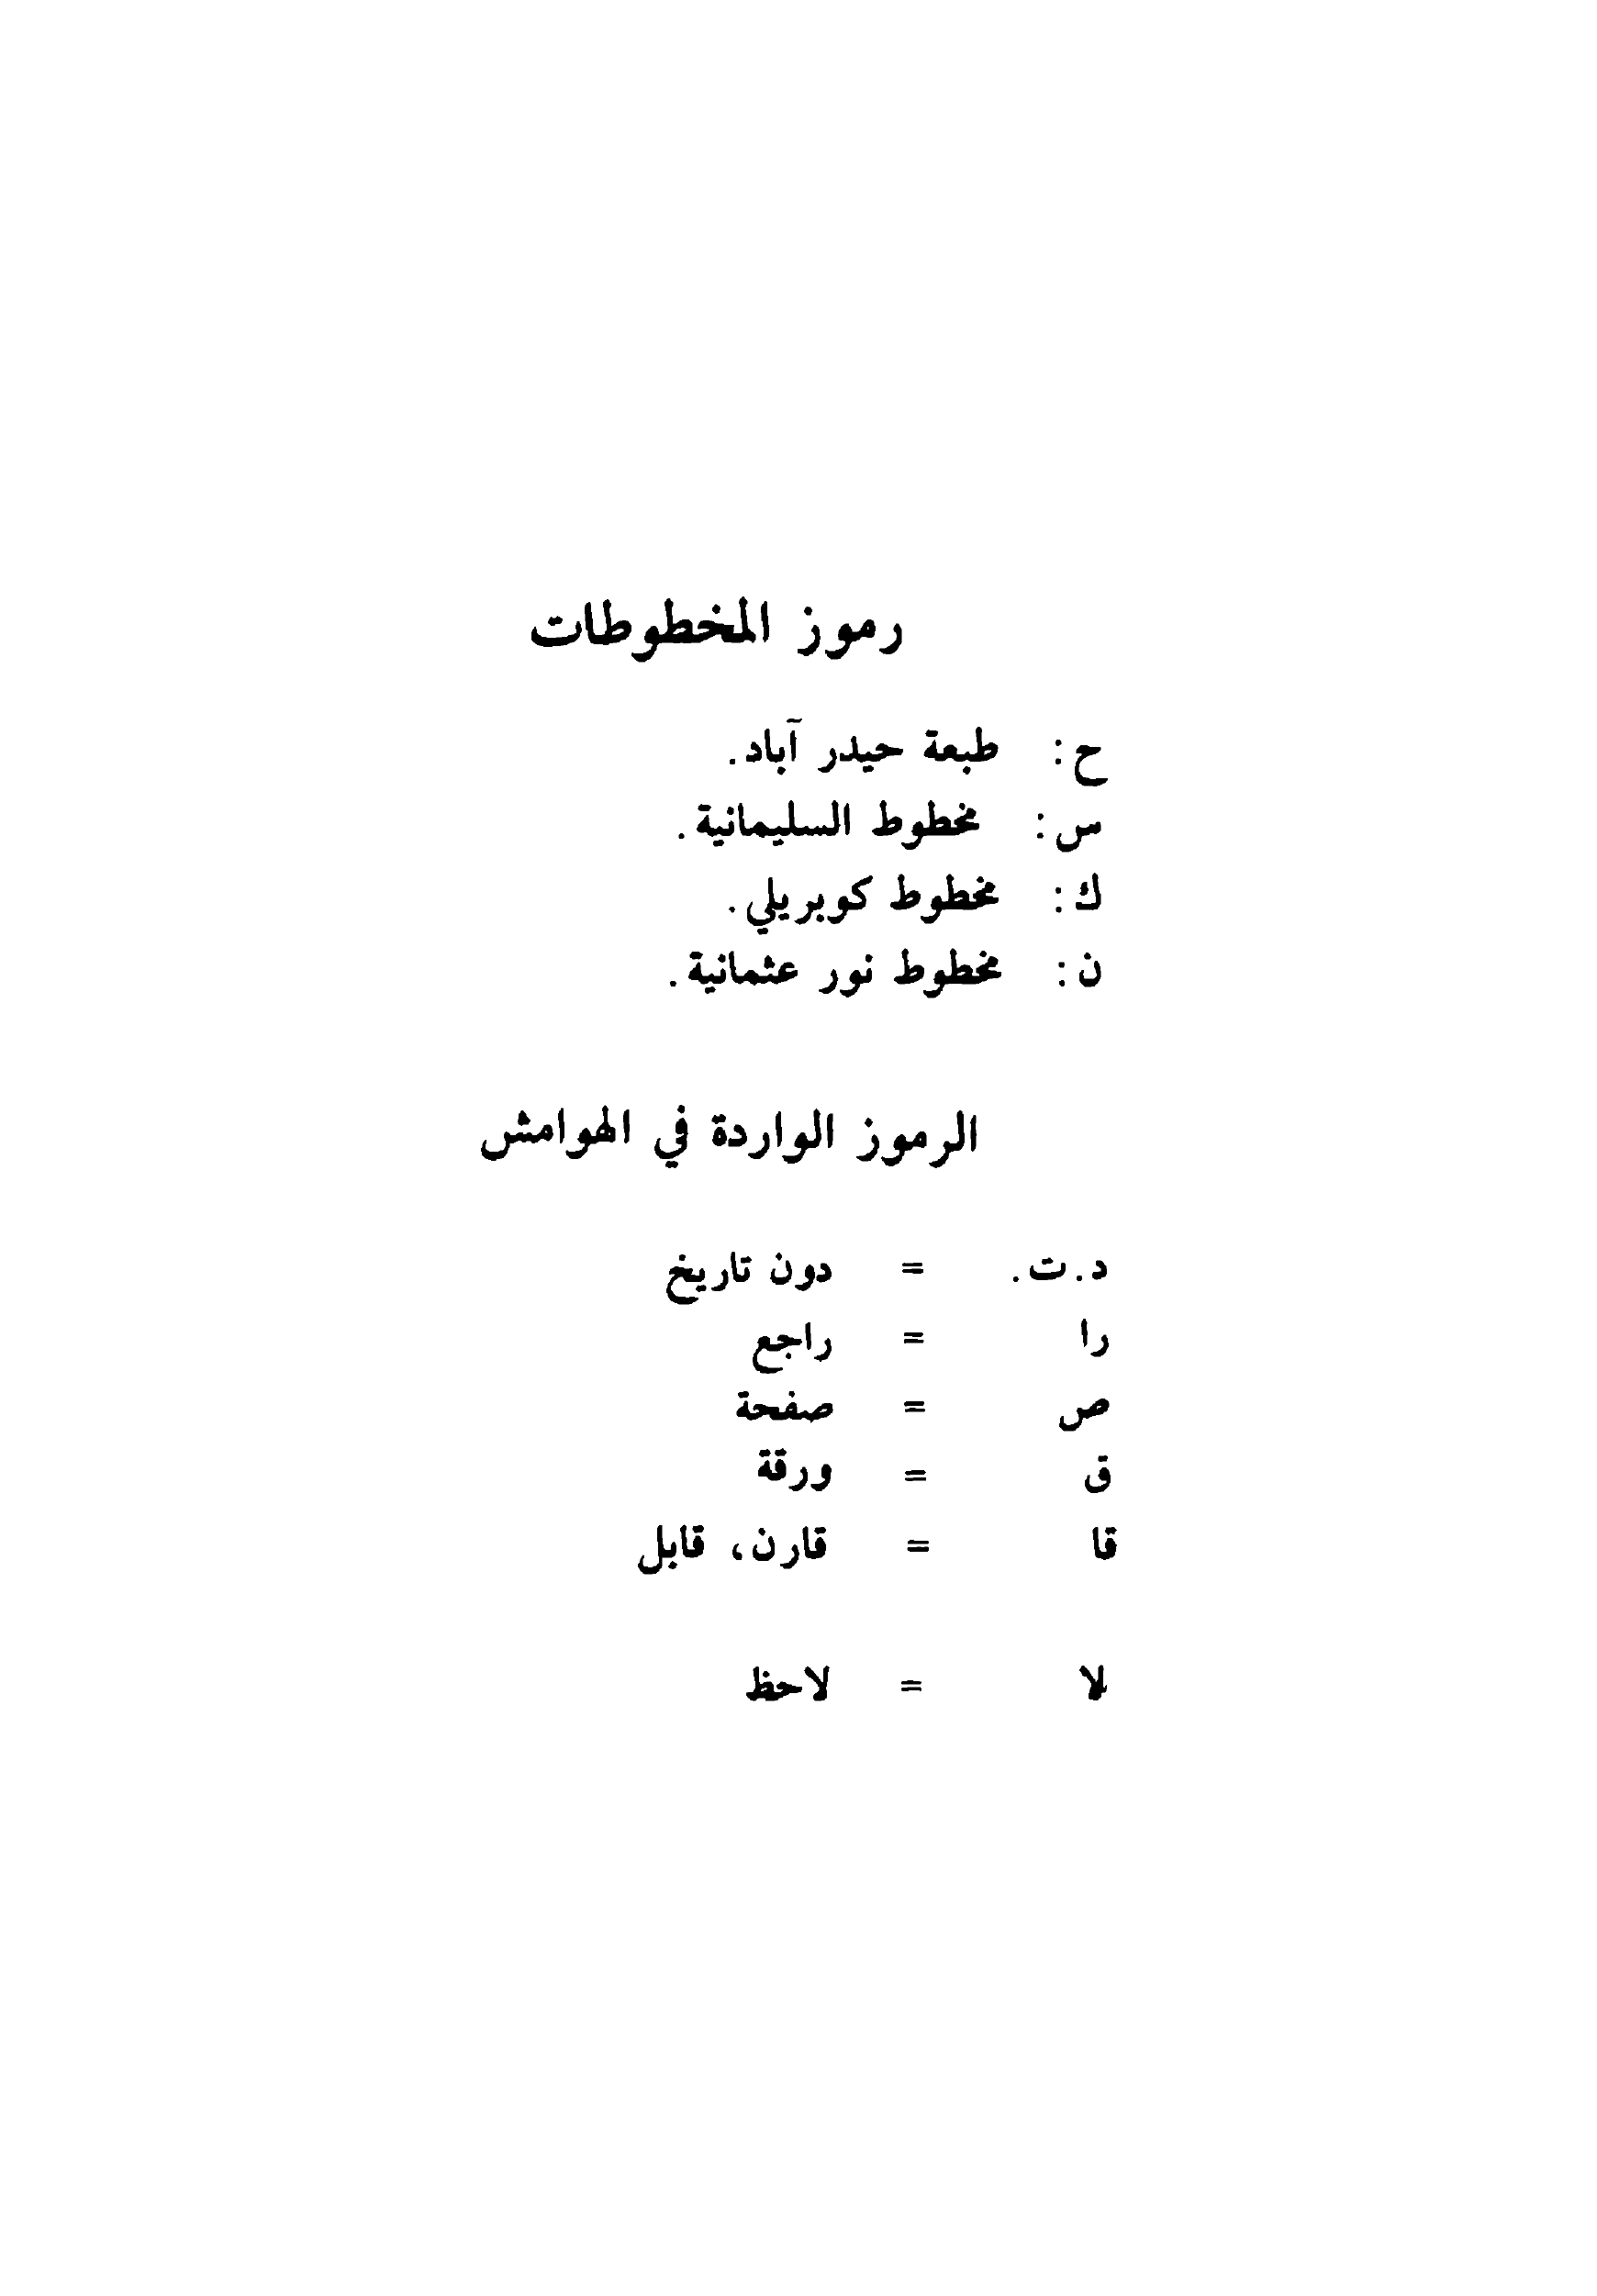 رموز المخطوطات
ح: طبعة حيدر آباد.
س: مخطوط السليمانية.
ك: مخطوط كوبريلي.
ن: مخطوط نور عثمانية.
الرموز الواردة في الهوامش
د.ت. = دون تاريخ
را = راجع
ص = صفحة
ق = ورقة
قا = قارن، قابل
لا = لاحظ